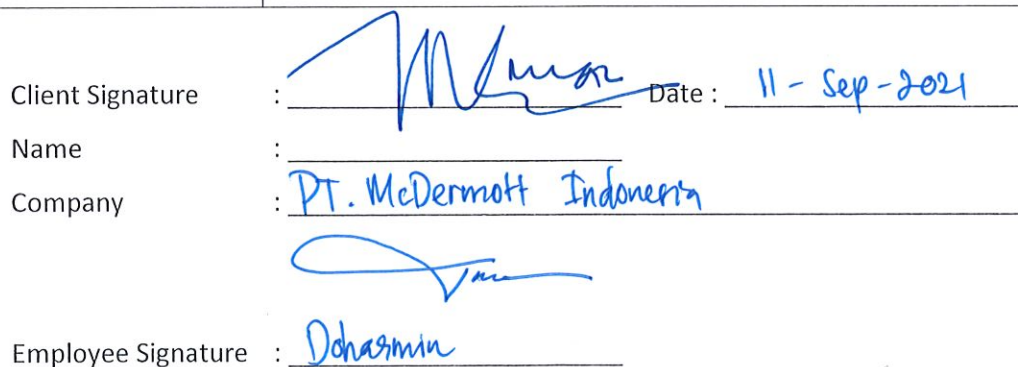 Client Signature : Date : 11 - Sep - 2021
Name :
Company : PT. McDermott Indonesia
Employee Signature : Doharmin